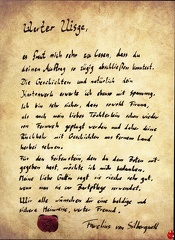 Werter Wisge,
es freut mich sehr zu lesen, dass du
deinen Auftrag so zügig abschließen konntest.
Die Geschichten und natürlich dein
Kartenwerk erwarte ich ebenso mit Spannung.
Ich bin sehr sicher, dass sowohl Firuna,
als auch mein liebes Töchterlein schon wieder
von Fernweh geplagt werden und daher deine
Rückkehr mit Geschichten aus fernem Land
herbei sehnen.
Für den Seifenstein, den du dem Boten mit-
gegeben hast, möchte ich mich bedanken.
Meine liebe Gattin sagt sie rieche sehr gut,
wenn man sie zur Bartpflege anwendet.
Wir alle wünschen dir eine baldige und
sichere Heimreise, werter Freund.
von Silberquell